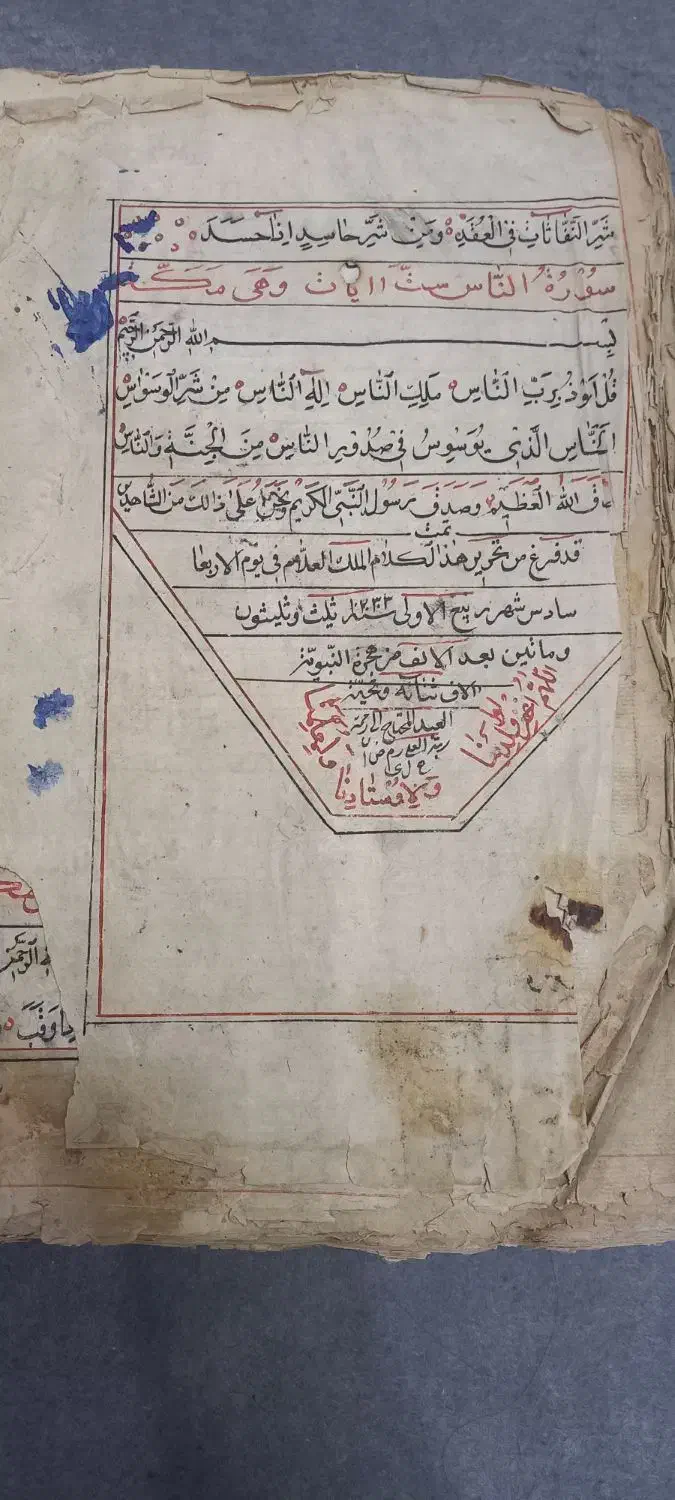 شَرِّ النَّفَّاثَاتِ فِى الْعُقَدِ وَمِنْ شَرِّ حَاسِدٍ اِذَا حَسَدَ
سُوْرَةُ النَّاس ستّ اايات وَهِىَ مَكّـ
بِســـم الله الرَّحْمٰنِ الرَّحِيْمِ
قُلْ اَعُوْذُ بِرَبِّ النَّاسِ مَلِكِ النَّاسِ اِلٰهِ النَّاسِ مِنْ شَرِّ الْوَسْوَاسِ
الْخَنَّاسِ الَّذِى يُوَسْوِسُ فِى صُدُوْرِ النَّاسِ مِنَ الْجِنَّةِ وَالنَّاسِ
الله الْعَظِيْم وَصَدَقَ رَسُوْلُ النَّبِىّ الْكَرِيْم وَنَحْنُ عَلٰى ذالك مِنَ الشَّاهِدِيْن
تمت
قد فرغ من تحرير هذ الكلام الملك العلام فى يوم الاربعا
سادس شهر ربيع الاولى ١٢٣٣ سنه ثلث وثليثون
وماتين بعد الالف من هجرة النبوية
الاف ثنائة وتحيّة
العبد المحتاج الى رحمة
اللّٰهُمَّ اغْفِرْ
وَلِاُوسْتَادِنَا